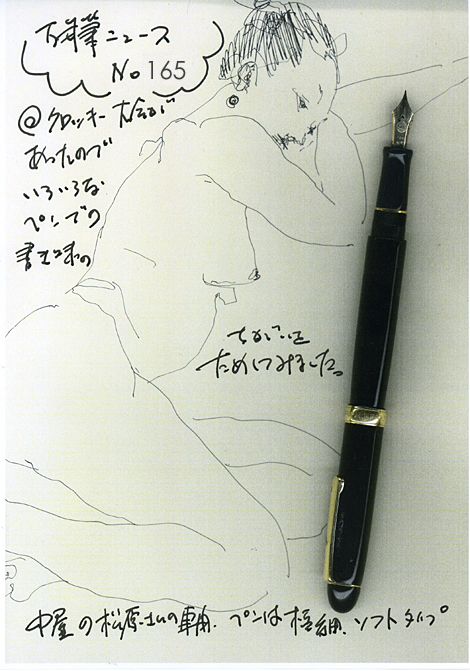 万年筆ニュース
No 165
@クロッキー大会が
あったので
いろいろな
ペンでの
書き味の
ちがいを
ためしてみました。
中屋の松原さんの軸. ペンは極細. ソフトタイプ